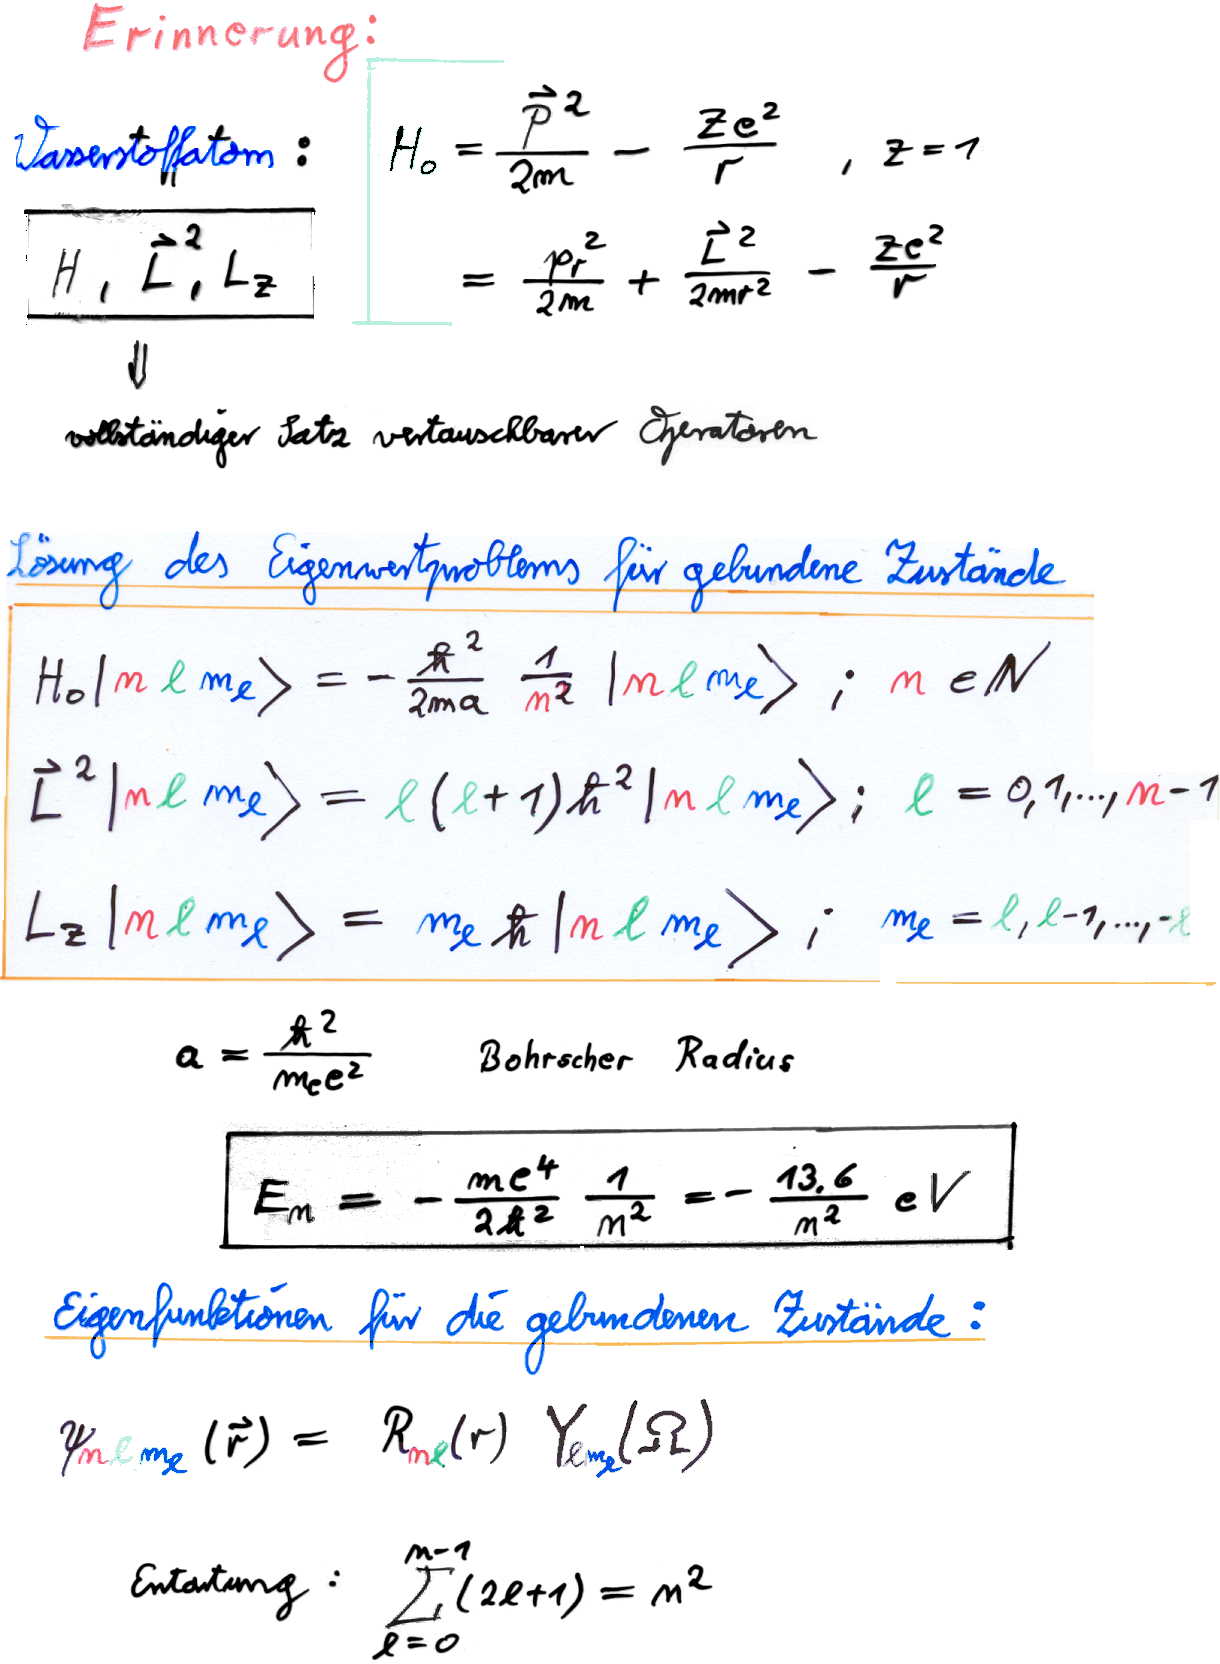 Erinnerung:
Wasserstoffatom: H₀ = p⃗²/2m − Ze²/r , z = 1
H, L⃗², L_z = p_r²/2m + L⃗²/2mr² − Ze²/r
⇓
vollständiger Satz vertauschbarer Operatoren
Lösung des Eigenwertproblems für gebundene Zustände
H₀|n ℓ m_ℓ⟩ = − ħ²/2ma 1/n² |n ℓ m_ℓ⟩ ; n ∈ N
L⃗²|n ℓ m_ℓ⟩ = ℓ(ℓ+1)ħ²|n ℓ m_ℓ⟩; ℓ = 0,1,...,n−1
L_z|n ℓ m_ℓ⟩ = m_ℓ ħ|n ℓ m_ℓ⟩ ; m_ℓ = ℓ, ℓ−1,...,−ℓ
a = ħ²/m_e e² Bohrscher Radius
E_n = − me⁴/2ħ² 1/n² = − 13,6/n² eV
Eigenfunktionen für die gebundenen Zustände:
ψ_nℓm_ℓ (r⃗) = R_nℓ(r) Y_ℓm_ℓ(Ω)
Entartung: ∑_{ℓ=0}^{n−1} (2ℓ+1) = n²